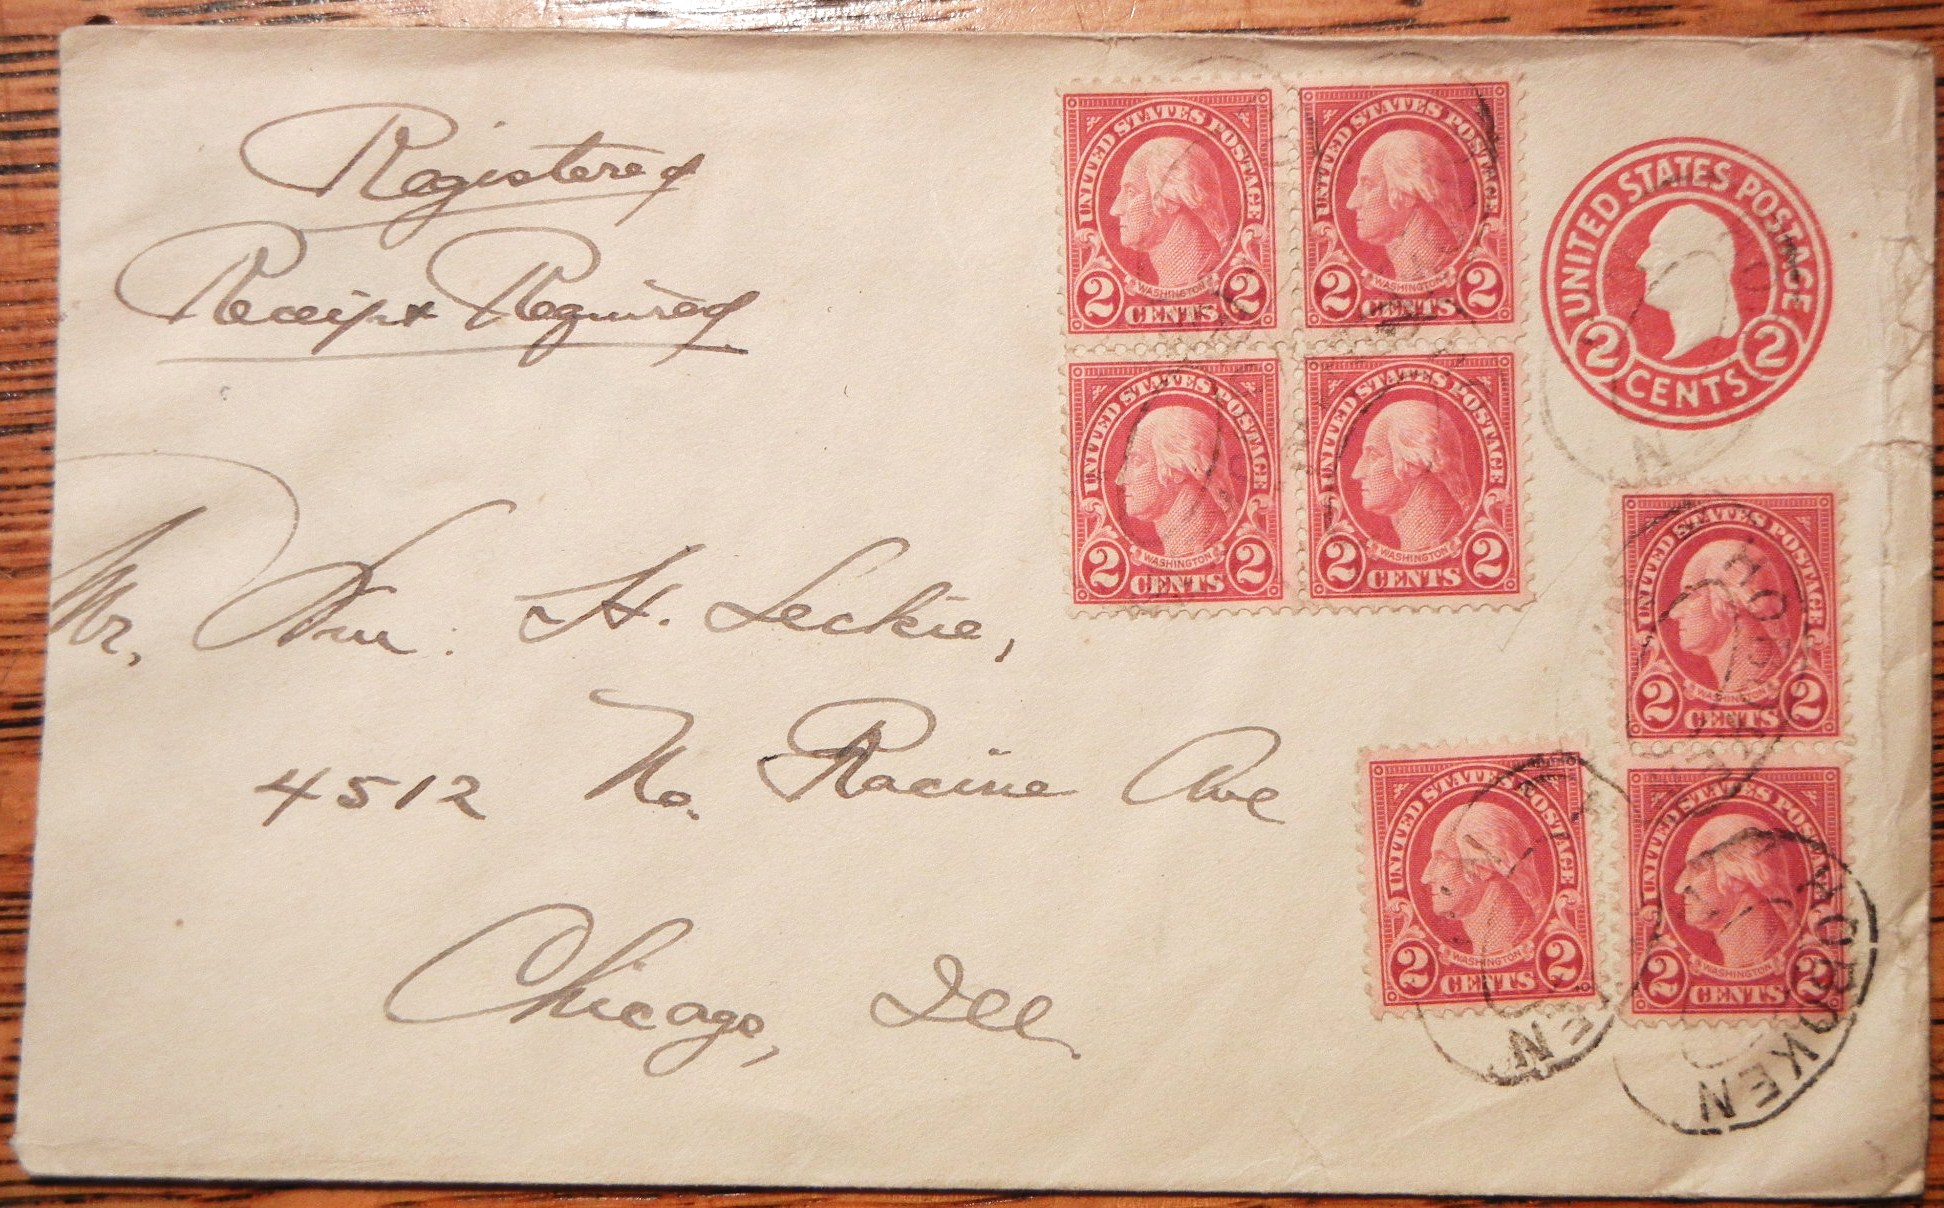 Registered
Receipt Required
Mr. Wm. H. Leckie,
4512 No. Racine Ave
Chicago, Ill
UNITED STATES POSTAGE
WASHINGTON
2 CENTS 2
UNITED STATES POSTAGE
WASHINGTON
2 CENTS 2
UNITED STATES POSTAGE
2 CENTS 2
UNITED STATES POSTAGE
WASHINGTON
2 CENTS 2
UNITED STATES POSTAGE
WASHINGTON
2 CENTS 2
UNITED STATES POSTAGE
WASHINGTON
2 CENTS 2
UNITED STATES POSTAGE
WASHINGTON
2 CENTS 2
UNITED STATES POSTAGE
WASHINGTON
2 CENTS 2
HOBOKEN
HOBOKEN